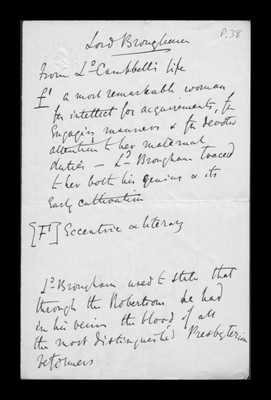 P. 38
Lord Brougham
From Ld Campbell's life
f1 a most remarkable woman
for intellect for acquirements, for
Engaging manners & for devoted
attention to her maternal
duties – Ld Brougham traced
to her both his genius & its
Early cultivation
[F1] Eccentric & literary
Ld Brougham used to state that
through the Robertsons he had
in his veins the blood of all
the most distinguished Presbyterian
reformers